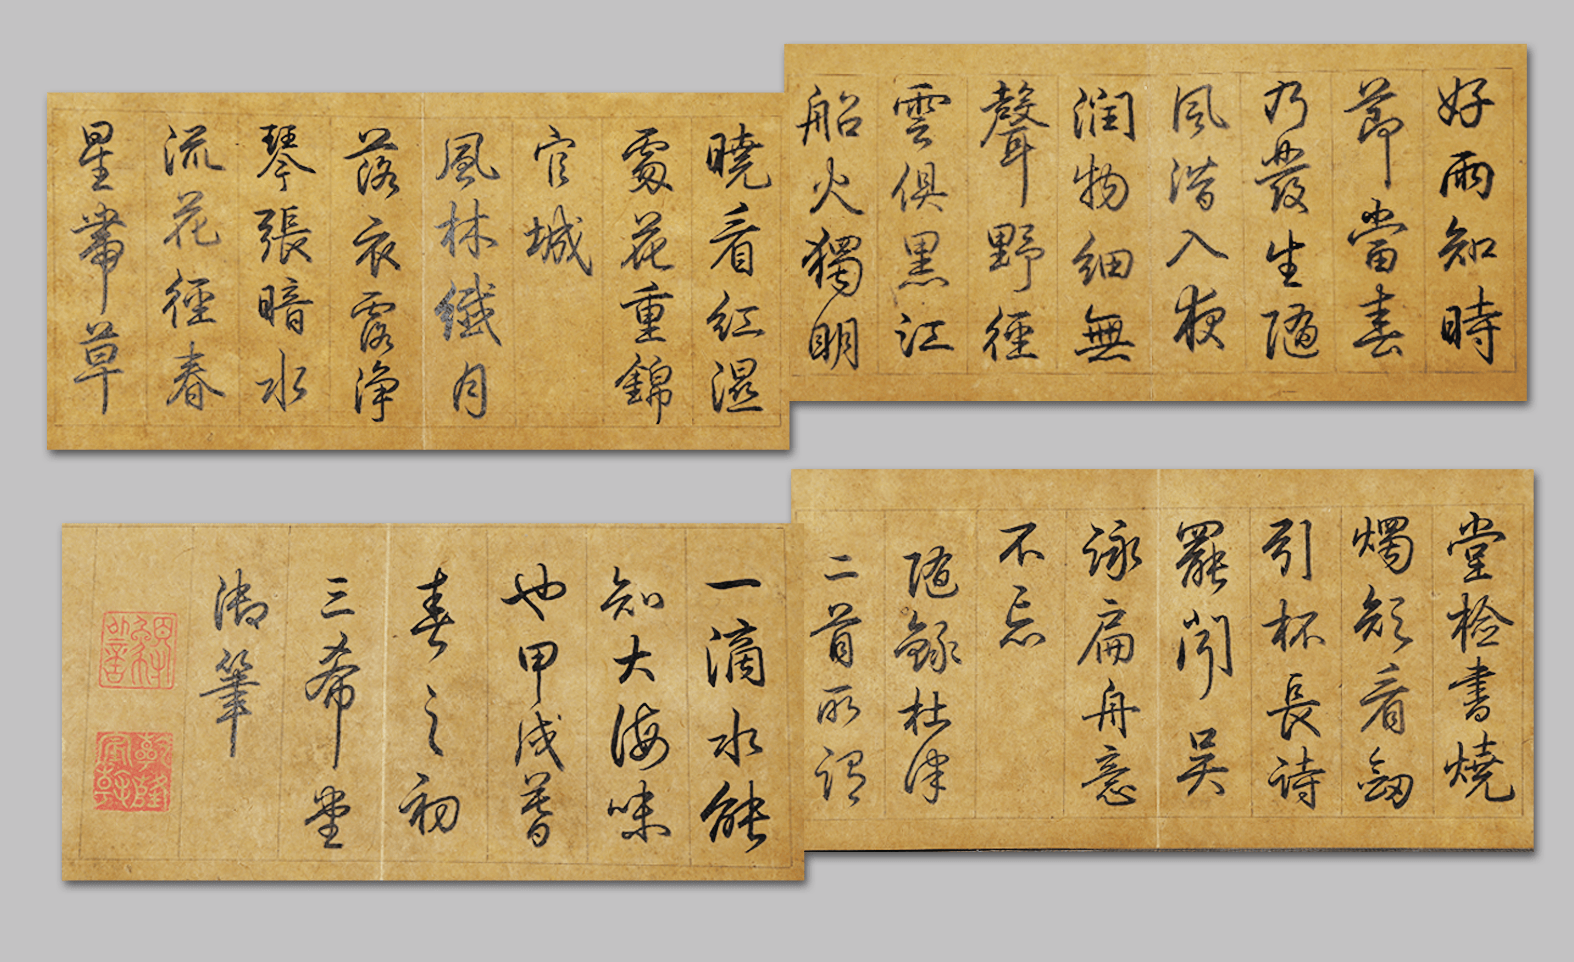 好雨知時
節當春
乃發生隨
風潛入夜
潤物細無
聲野徑
雲俱黑江
船火獨明
曉看紅濕
處花重錦
官城
風林纖月
落衣露淨
琴張暗水
流花徑春
星帶草
堂檢書燒
燭短看劍
引杯長詩
罷聞吳
詠扁舟意
不忘
隨錄杜律
二首所謂
一滴水能
知大海味
也甲戌暮
春之初
三希堂
御筆
乾隆宸翰